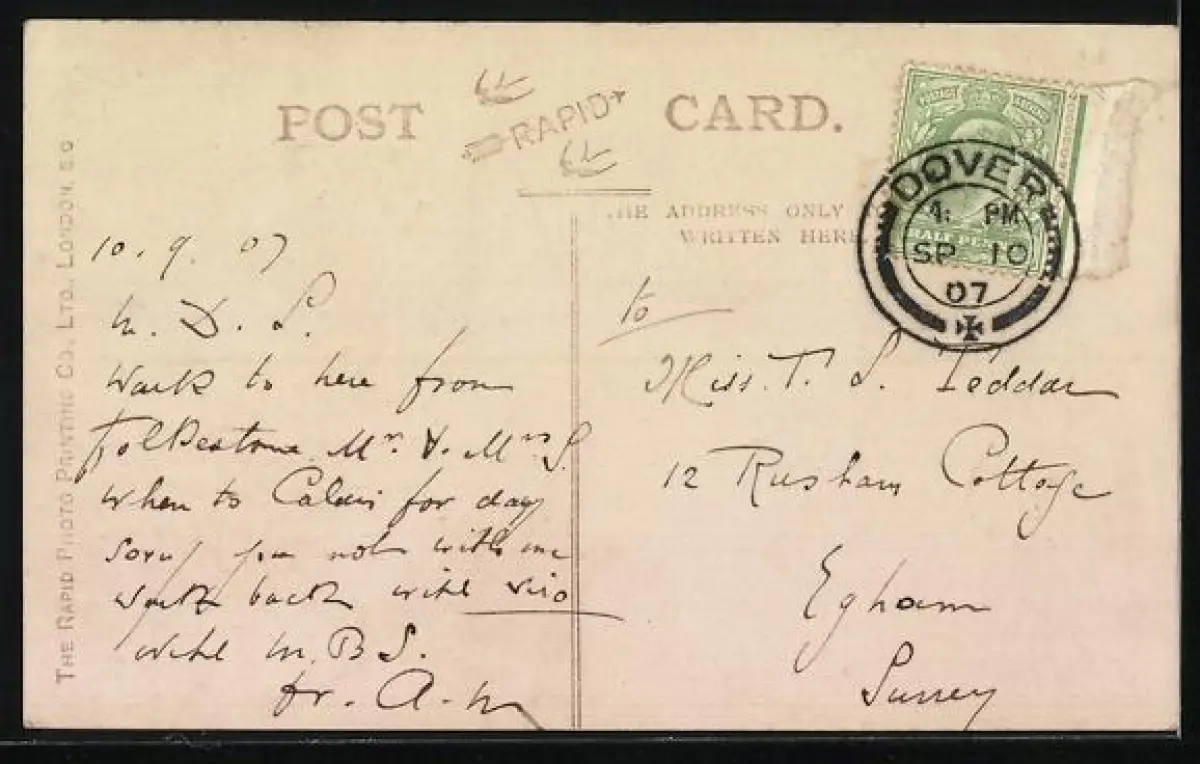 POST CARD.
RAPID
THE ADDRESS ONLY
WRITTEN HERE
HALF PE
DOVER
4: PM
SP 10
07
THE RAPID PHOTO PRINTING CO. LTD., LONDON, E.C.
10. 9. 07
M. D. S.
Walk to here from
Folkestone Mr. & Mrs S.
when to Calais for day
sorry you not with me
walk back with
with M. B. S.
fr. A. M
to
Miss. T. S. Teddar
12 Rusham Cottage
Egham
Surrey